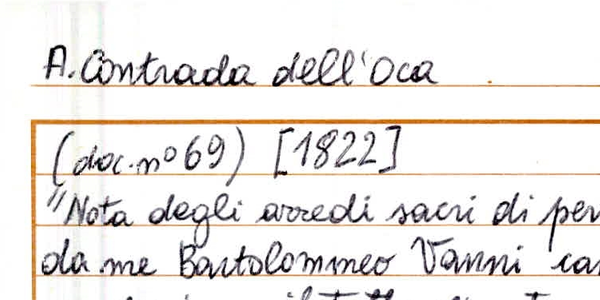 A. Contrada dell'Oca
(doc. nº 69) [1822]
"Nota degli arredi sacri di
da me Bartolommeo Vanni